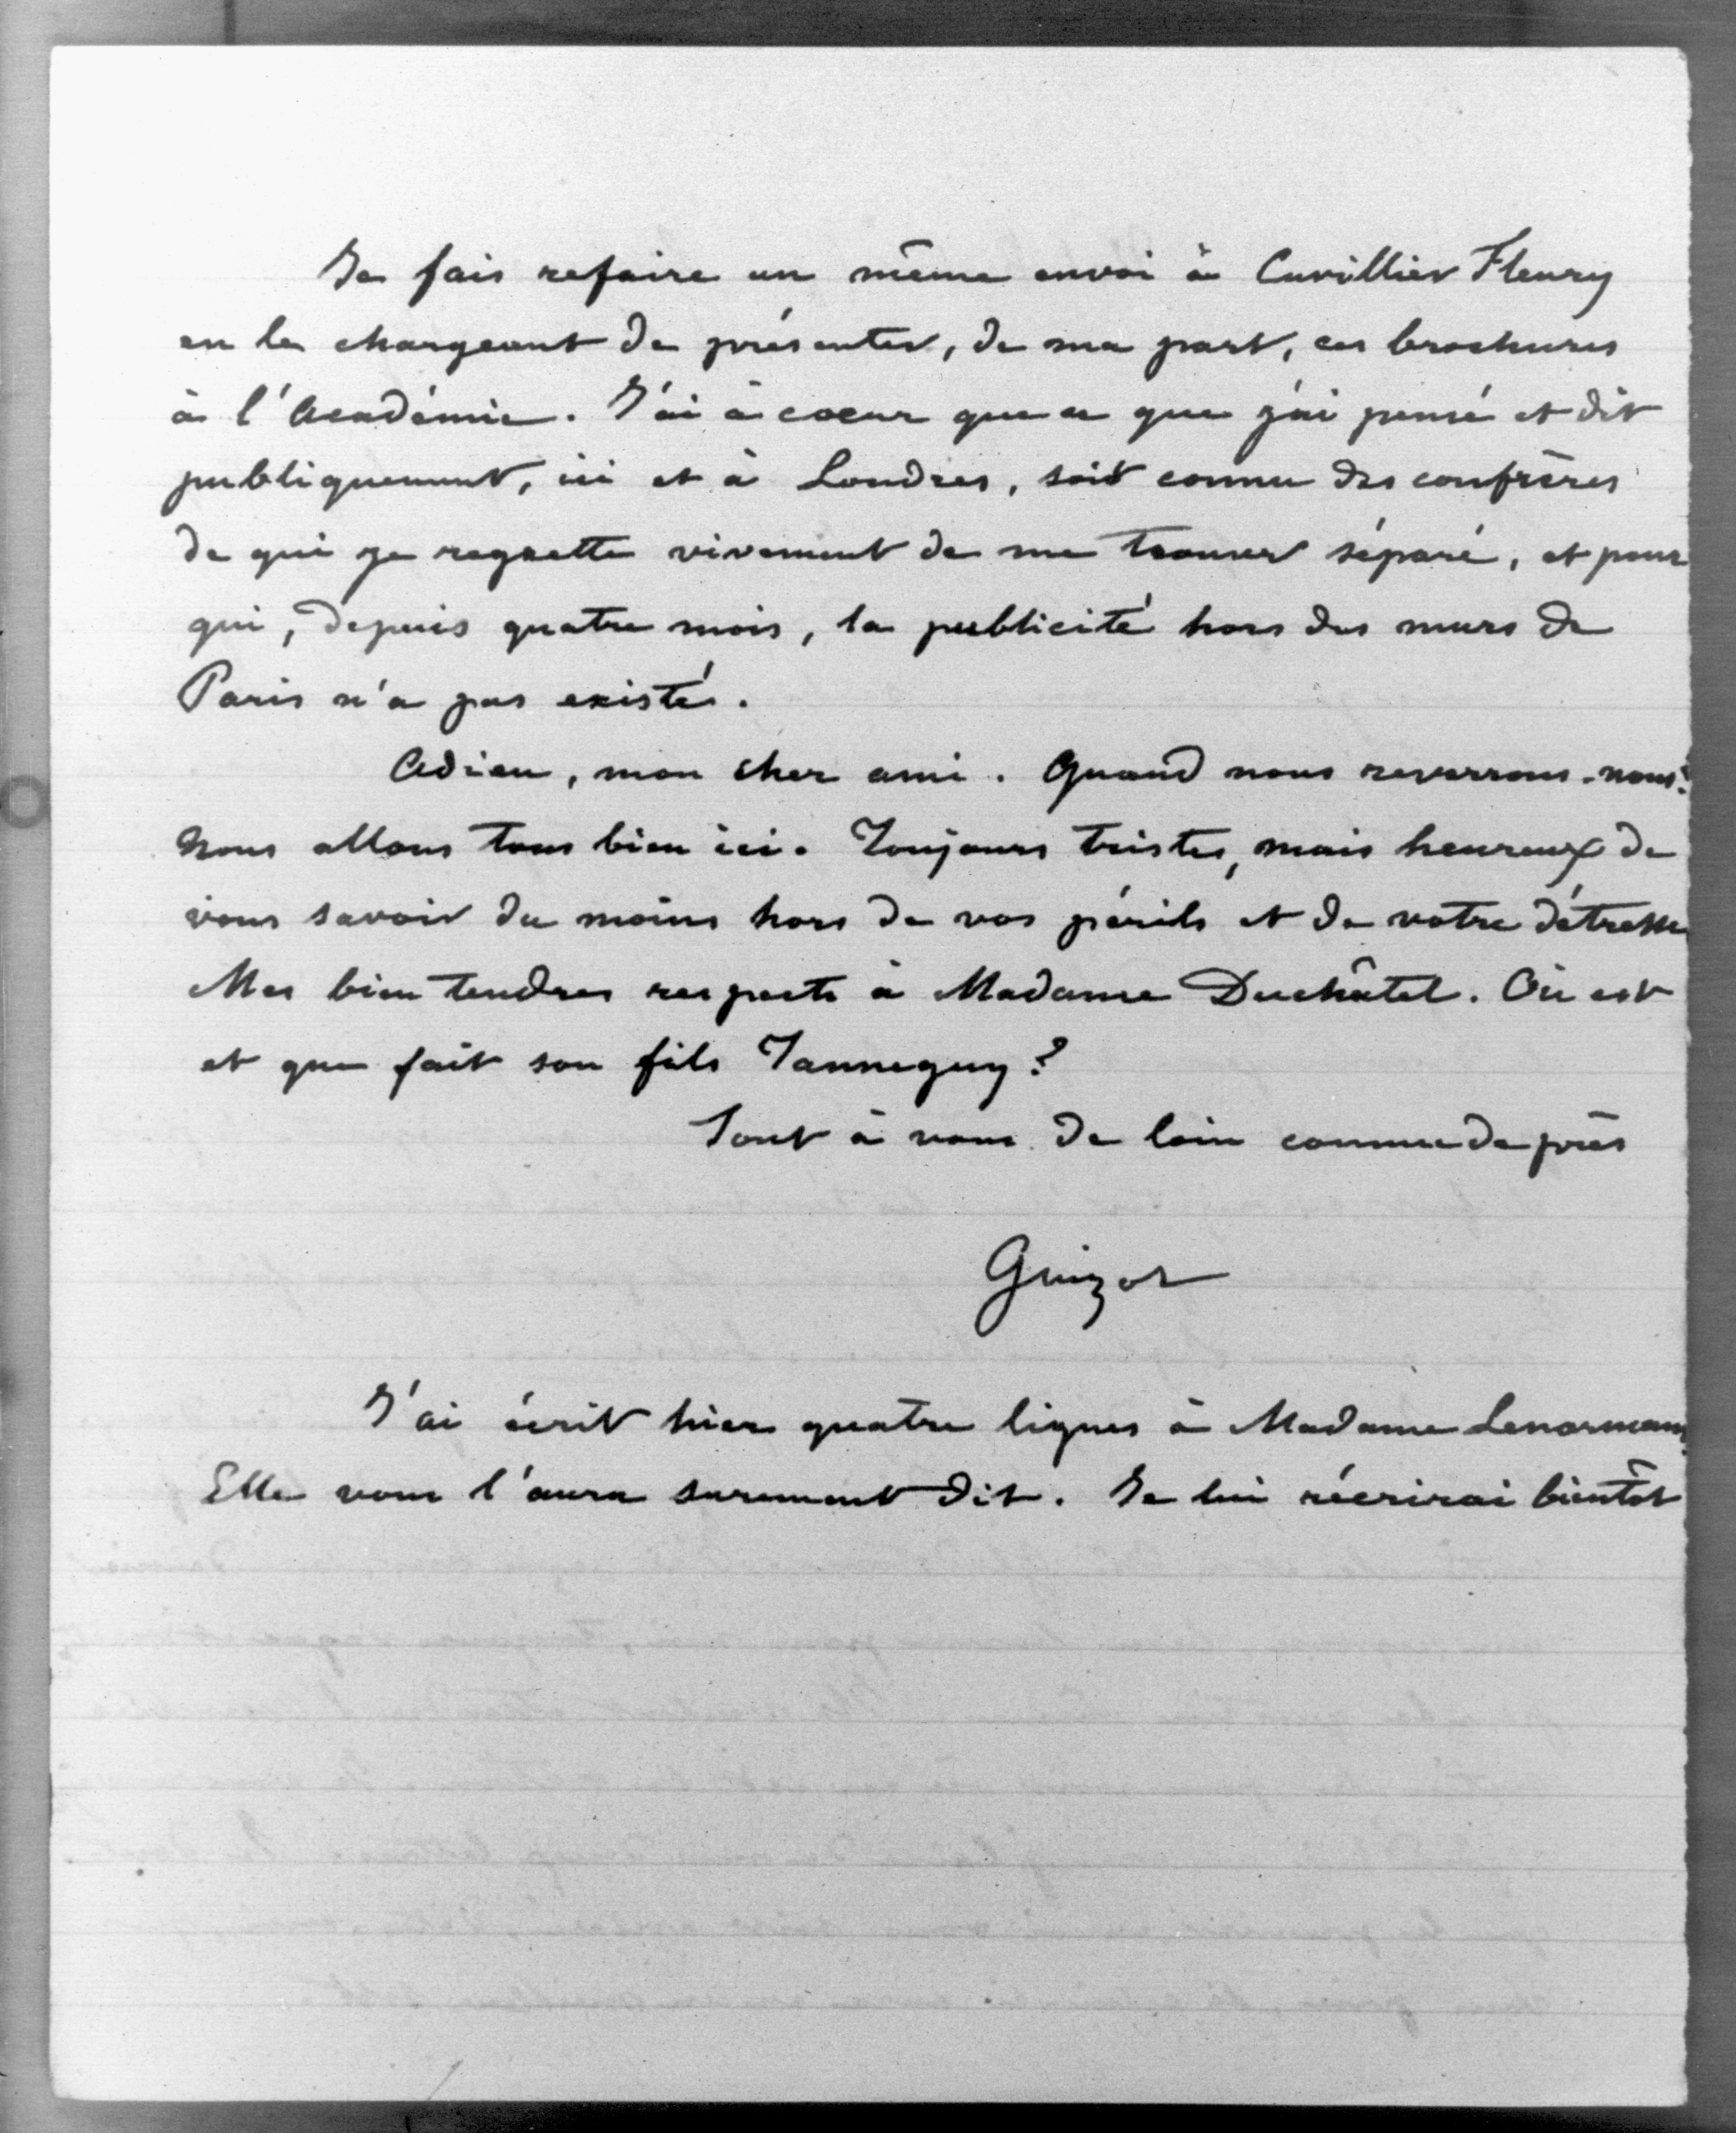 Je fais refaire un même envoi à Cuvillier Fleury
en le chargeant de présenter, de ma part, ces brochures
à l'Académie. J'ai à coeur que ce que j'ai pensé et dit
publiquement, ici et à Londres, soit connu des confrères
de qui je regrette vivement de me trouver séparé, et pour
qui, depuis quatre mois, la publicité hors des murs de
Paris n'a pas existé.
Adieu, mon cher ami. Quand nous reverrons-nous?
Nous allons tous bien ici. Toujours tristes, mais heureux de
vous savoir du moins hors de vos périls et de votre détresse
Mes bien tendres respects à Madame Duchâtel. Où est
et que fait son fils Tanneguy?
Tout à vous de loin comme de près
Guizot
J'ai écrit hier quatre lignes à Madame Lenormant.
Elle vous l'aura surement dit. Je lui récrirai bientôt